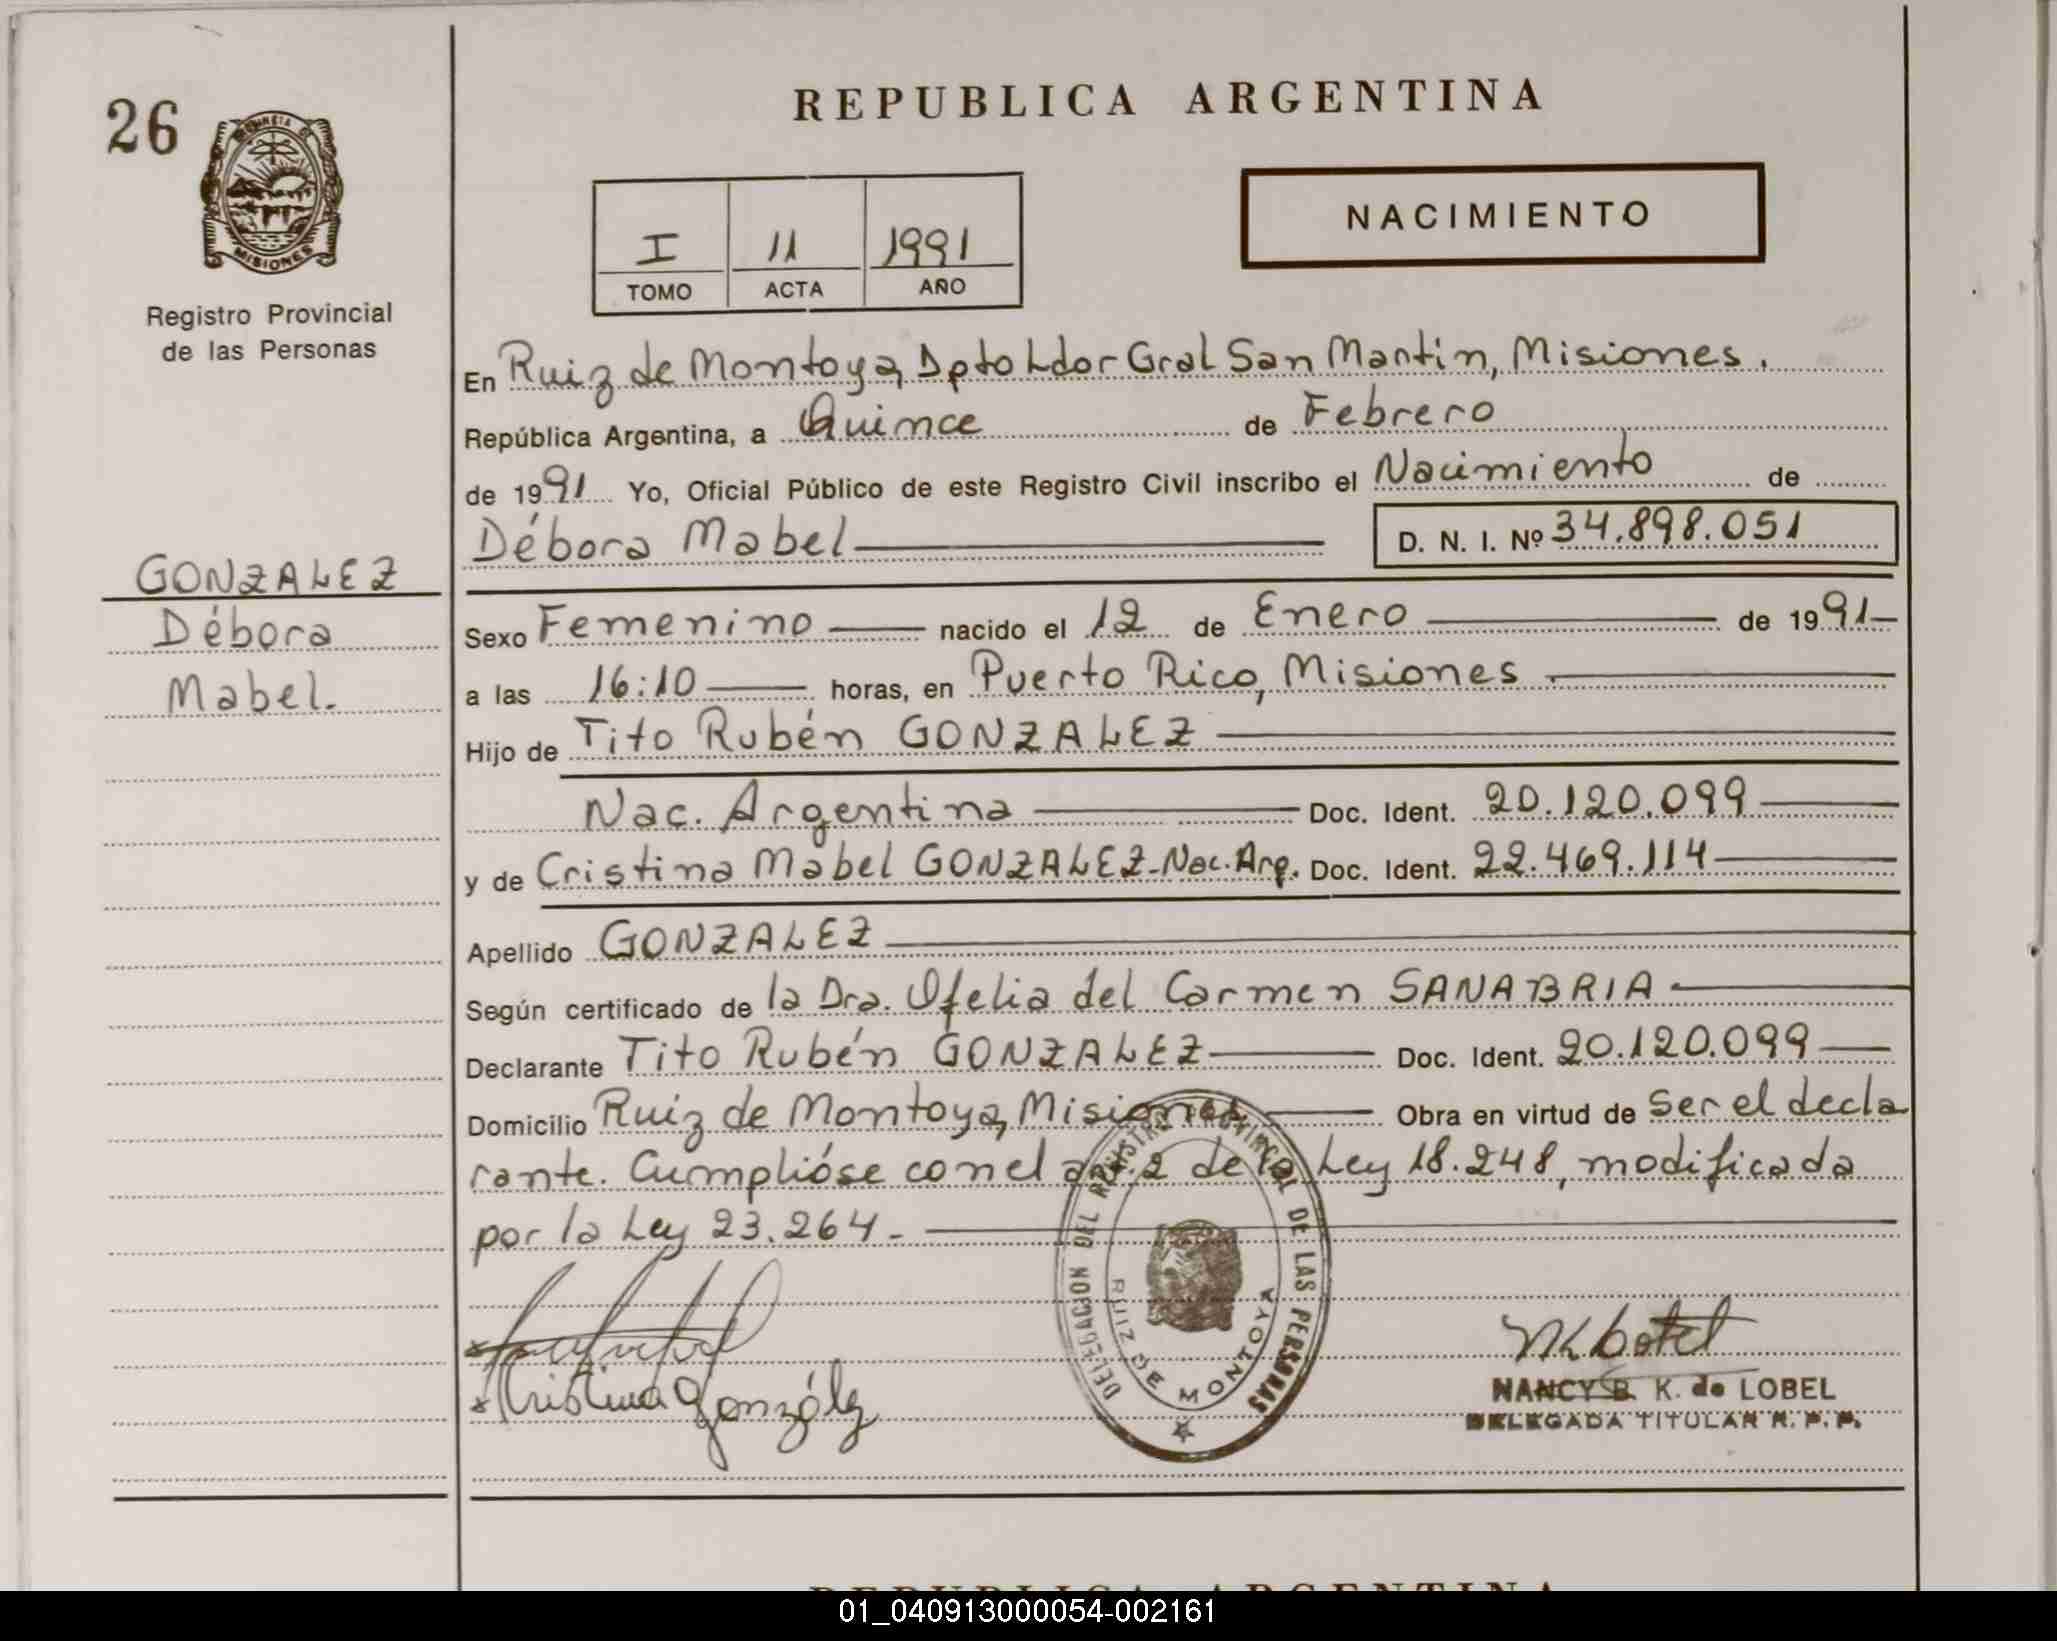 26
PROVINCIA DE
MISIONES
Registro Provincial
de las Personas
GONZALEZ
Débora
Mabel.
REPUBLICA ARGENTINA
I 11 1991
TOMO ACTA AÑO
NACIMIENTO
En Ruiz de Montoya, Dpto Ldor Gral San Martín, Misiones.
República Argentina, a Quince de Febrero
de 1991 Yo, Oficial Público de este Registro Civil inscribo el Nacimiento de
Débora Mabel D. N. I. Nº 34.898.051
Sexo Femenino nacido el 12 de Enero de 1991
a las 16:10 horas, en Puerto Rico, Misiones
Hijo de Tito Rubén GONZALEZ
Nac. Argentina Doc. Ident. 20.120.099
y de Cristina Mabel GONZALEZ-Nac. Arg. Doc. Ident. 22.469.114
Apellido GONZALEZ
Según certificado de la Dra. Ofelia del Carmen SANABRIA
Declarante Tito Rubén GONZALEZ Doc. Ident. 20.120.099
Domicilio Ruiz de Montoya, Misiones Obra en virtud de Ser el decla
rante. Cumplióse con el art. 2 de la Ley 18.248, modificada
por la Ley 23.264.-
DELEGACION DEL REGISTRO PROVINCIAL DE LAS PERSONAS
RUIZ DE MONTOYA
x
x Cristina González
NANCY B. K. de LOBEL
DELEGADA TITULAR R. P. P.
REPUBLICA ARGENTINA
01_040913000054-002161